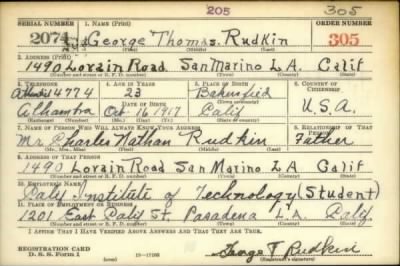 205 305
SERIAL NUMBER 1. NAME (Print) ORDER NUMBER
2074 George Thomas Rudkin 305
(First) (Middle) (Last)
2. ADDRESS (Print)
1490 Lorain Road San Marino L.A. Calif
(Number and street or R. F. D. number) (Town) (County) (State)
3. TELEPHONE 4. AGE IN YEARS 5. PLACE OF BIRTH 6. COUNTRY OF CITIZENSHIP
14774 23 Bakersfield
Alhambra DATE OF BIRTH Oct 16 1917 Calif U.S.A.
(Exchange) (Number) (Mo.) (Day) (Yr.) (State or country)
7. NAME OF PERSON WHO WILL ALWAYS KNOW YOUR ADDRESS 8. RELATIONSHIP OF THAT PERSON
Mr. Charles Nathan Rudkin Father
(Mr., Mrs., Miss) (First) (Middle) (Last)
9. ADDRESS OF THAT PERSON
1490 Lorain Road San Marino L.A. Calif
(Number and street or R. F. D. number) (Town) (County) (State)
10. EMPLOYER'S NAME
Calif Institute of Technology (Student)
11. PLACE OF EMPLOYMENT OR BUSINESS
1201 East Calif St. Pasadena L.A. Calif.
(Number and street or R. F. D. number) (Town) (County) (State)
I AFFIRM THAT I HAVE VERIFIED ABOVE ANSWERS AND THAT THEY ARE TRUE.
REGISTRATION CARD
D. S. S. Form 1 (over) George T. Rudkin
(Registrant's signature)